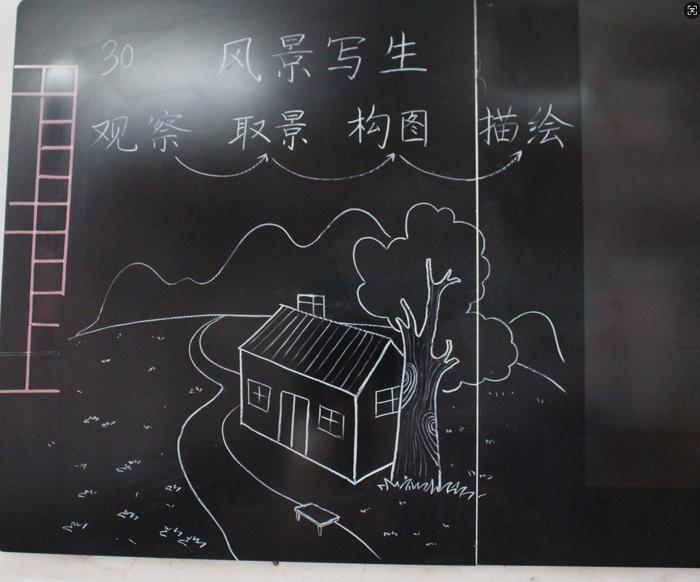 30 风景写生
观察 取景 构图 描绘